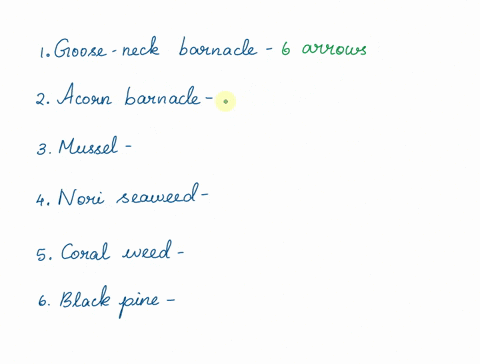 1. Goose-neck barnacle - 6 arrows
2. Acorn barnacle -
3. Mussel -
4. Nori seaweed -
5. Coral weed -
6. Black pine -